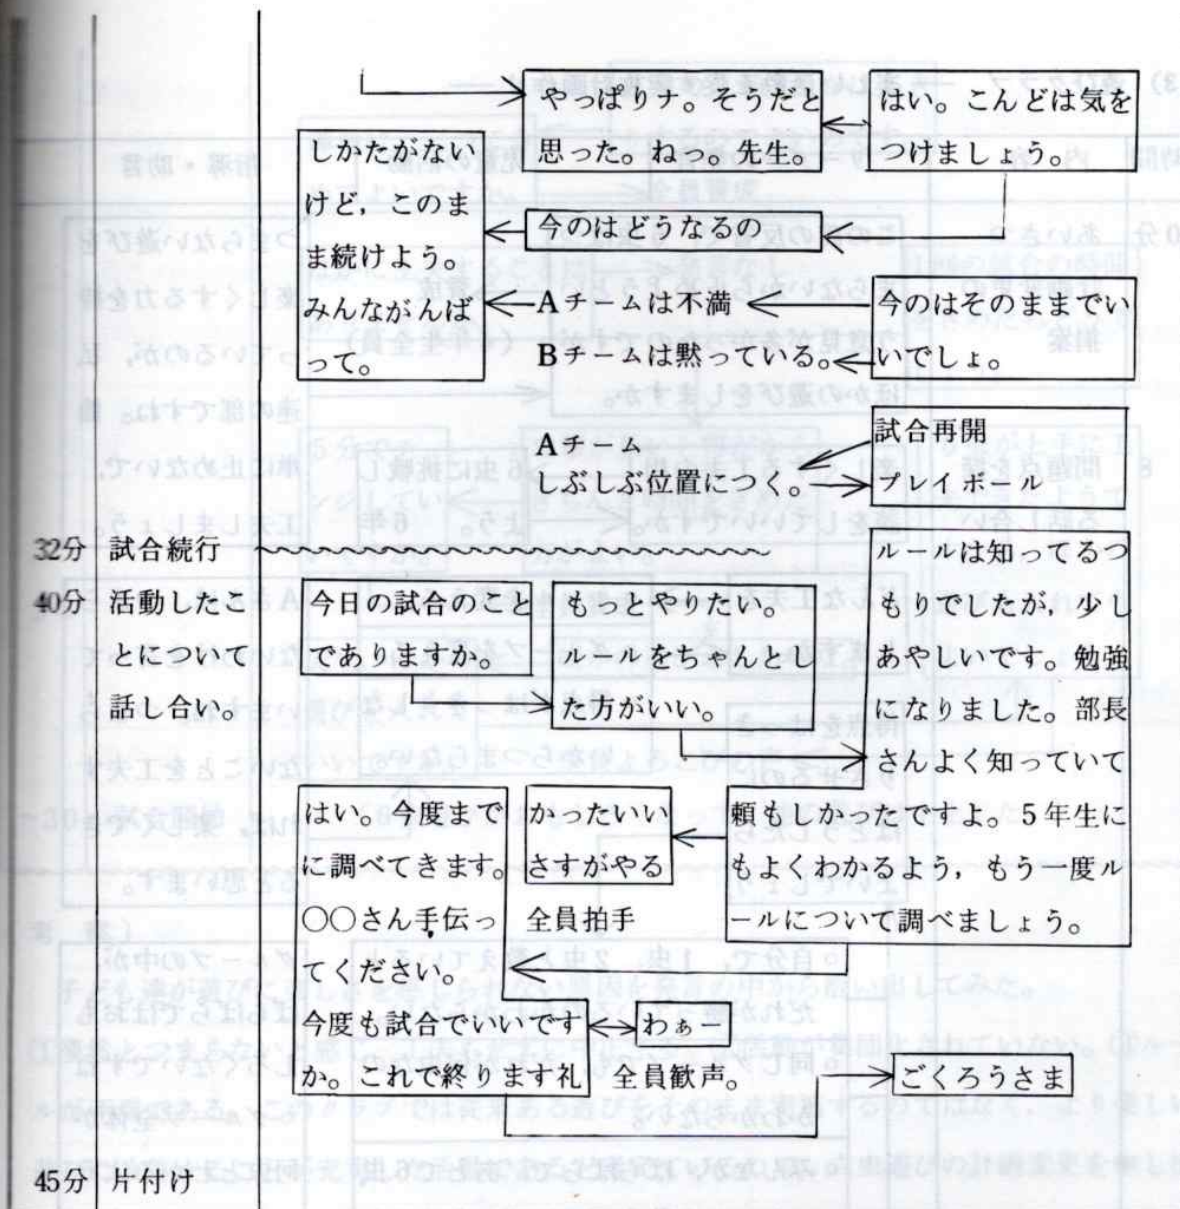 やっぱりナ。そうだと
思った。ねっ。先生。
はい。こんどは気を
つけましょう。
しかたがない
けど，このま
ま続けよう。
みんながんば
って。
今のはどうなるの
Aチームは不満
Bチームは黙っている。
今のはそのままでい
いでしょ。
Aチーム
しぶしぶ位置につく。
試合再開
プレイボール
32分 試合続行
40分 活動したこ
とについて
話し合い。
今日の試合のこと
でありますか。
もっとやりたい。
ルールをちゃんとし
た方がいい。
ルールは知ってるつ
もりでしたが，少し
あやしいです。勉強
になりました。部長
さんよく知っていて
頼もしかったですよ。5年生に
もよくわかるよう，もう一度ル
ールについて調べましょう。
かったいい
さすがやる
全員拍手
はい。今度まで
に調べてきます。
〇〇さん手伝っ
てください。
今度も試合でいいです
か。これで終ります礼
わぁー
全員歓声。
ごくろうさま
45分 片付け